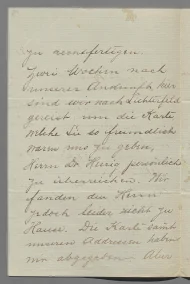 zu rechtfertigen.
Zwei Wochen nach
unserer Ankunft hier
sind wir nach Lichterfeld
gereist um die Karte
welche Sie so freundlich
waren uns zu geben,
Herrn Dr. persönlich
zu überreichen. Wir
fanden den Herrn
jedoch leider nicht zu
Hause. Die Karte samt
unseren Addressen haben
wir abgegeben. Aber